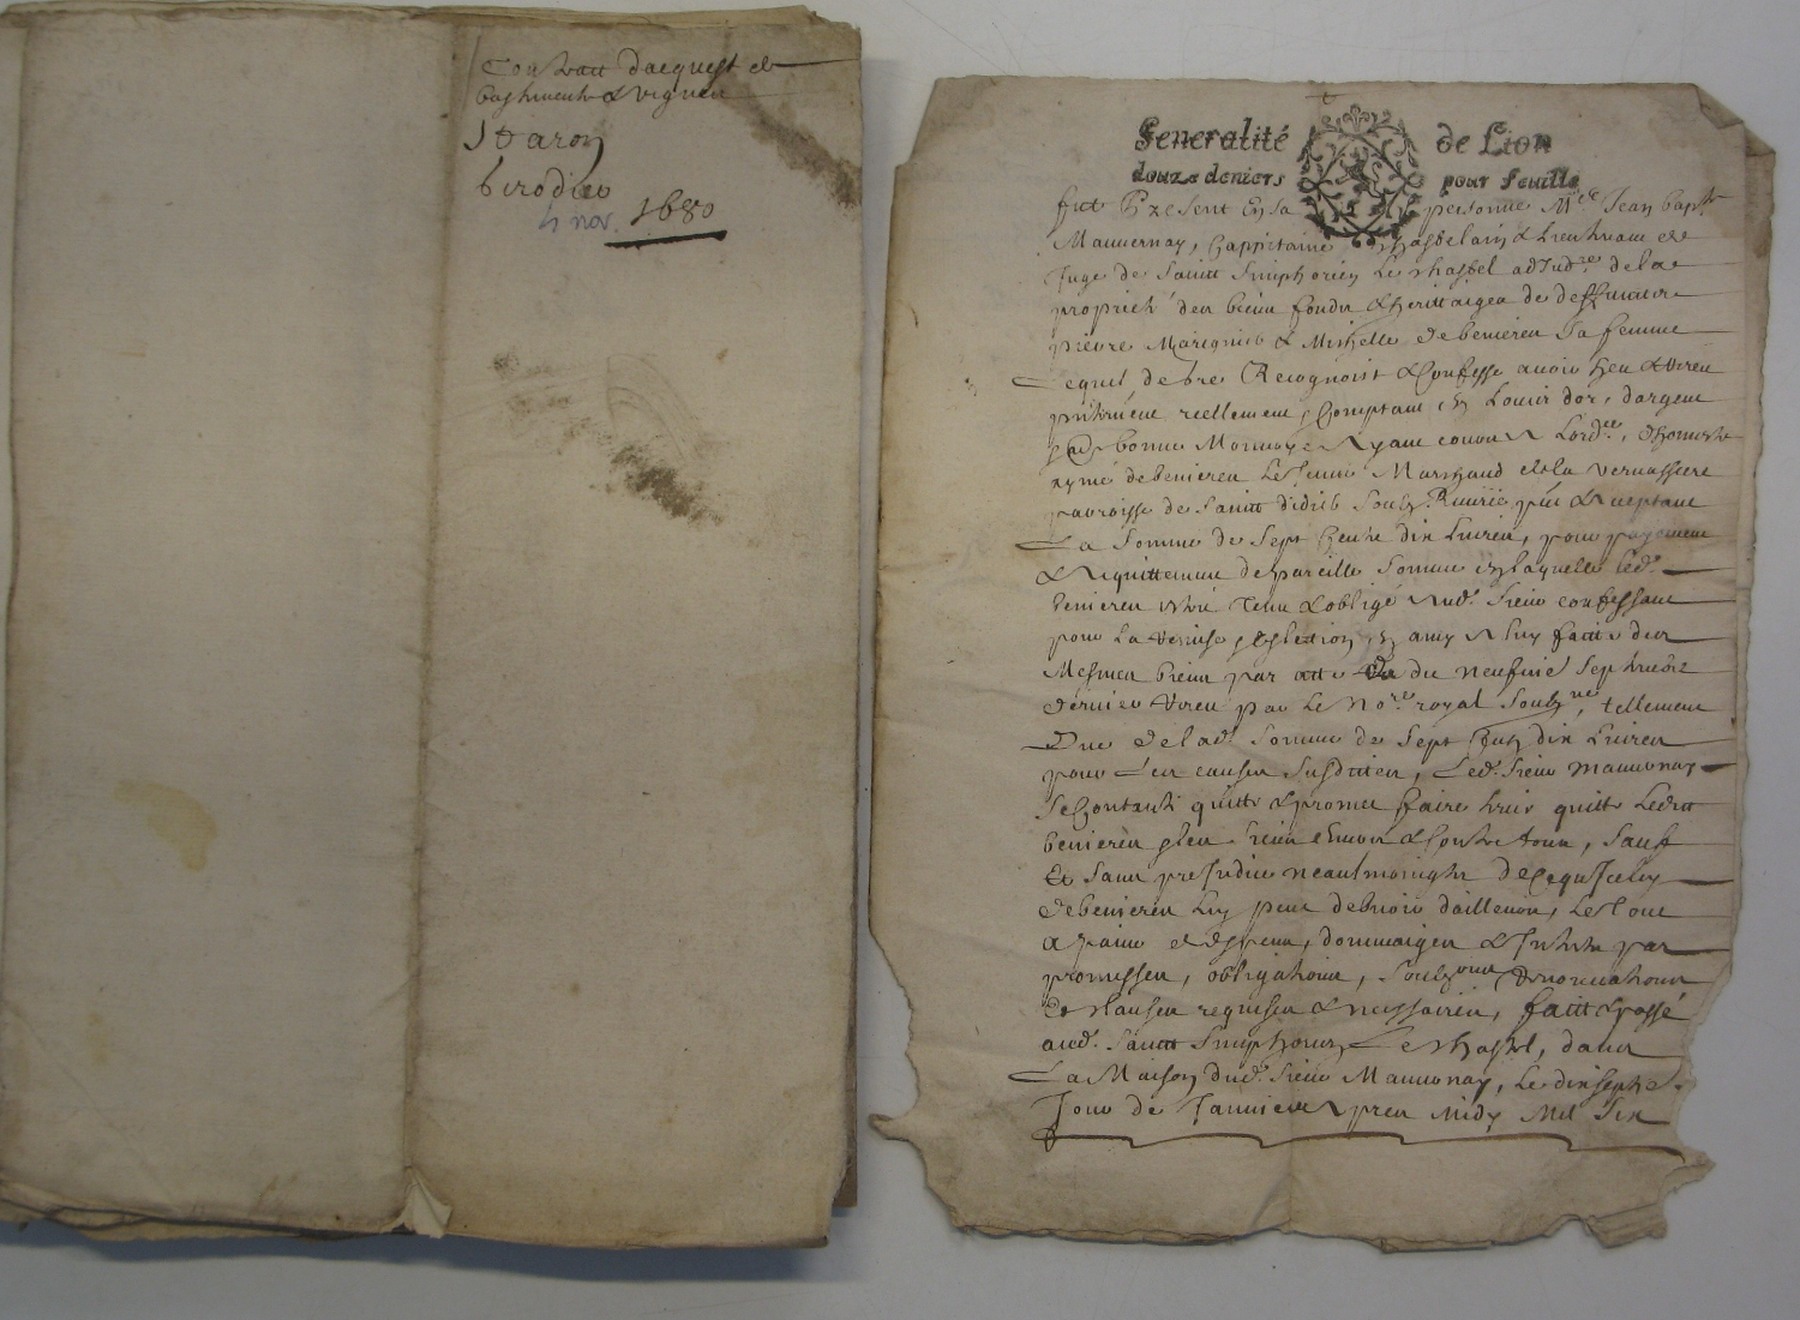 Contratt dacquest de
bastiments & vignes
St aron
berodier
4 nov. 1680
Generalité de Lion
douze deniers pour feuille
fut Present En sa personne Mre Jean bapte
Mauvernay, Cappitaine Chastelain & Lieutenant de
Juge de Sainct Simphorien Le Chastel adjudre de la
proprieté des biens fonds & herittaiges de deffuncts
pierre & Michelle de benieres sa femme
Lequel de gre Recognoist & Confesse avoir heu &
reellement, Comptant, en Louis dor, dargent
bonne Monnoye ayant cours a Lordce, dhonneste
aymé de benieres Le Jeune Marchand de la vernassiere
parroisse de Sainct didier Soubz Riverie pnt & acceptant
La Somme de Sept Cents dix Livres, pour payement
& acquittement de pareille Somme en laquelle led.
benieres estoit Tenu & obligé aud. Sieur confessant
pour La Remise en amy a luy faitte des
Mesmes biens par acte du neufvie Septembre
dernier Receu par Le Nore royal Soubzne, tellement
Que de lad. Somme de Sept Cents dix Livres
pour Les causes Susdittes, Led. Sieur Mauvernay
Se Contante quitte & promet faire tenir quitte Leditt
benieres envers & Contre tous, Sauf
Et Sans preJudice neantmoingtz de Ce qu Jceluy
de benieres Luy peut debvoir dailleurs, Le Tout
a paine de despens, dommaiges & Jnterests par
promesses, obligations, Soubzons Renonciations
& clauses requises & necessaires, faict & passé
aud. Sainct Simphorien Le Chastel, dans
La Maison dud. Sieur Mauvernay, Le dixseptie
Jour de Janvier apres Midy Mil Six